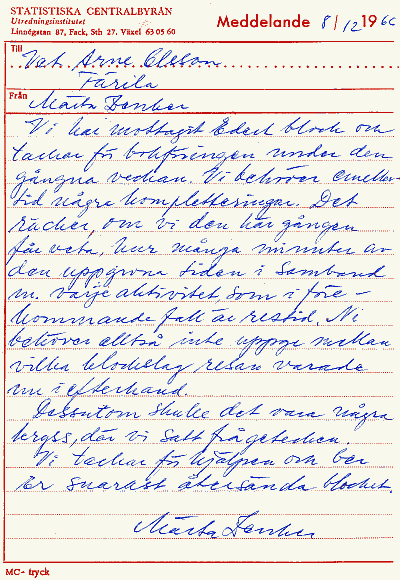 STATISTISKA CENTRALBYRÅN
Utredningsinstitutet
Linnégatan 87, Fack, Sth 27. Växel 63 05 60
Meddelande 8/12 1966
Till
Vet. Arne Olsson
Färila
Från
Märta
Vi har mottagit Edert block och
tackar för bokföringen under den
gångna veckan. Vi behöver emeller-
tid några kompletteringar. Det
räcker, om vi den här gången
får veta, hur många minuter av
den uppgivna tiden i samband
m. varje aktivitet, som i före-
kommande fall är restid. Ni
behöver alltså inte uppge mellan
vilka klockslag resan varade
nu i efterhand.
Dessutom skulle det vara några
, där vi satt frågetecken.
Vi tackar för hjälpen och ber
Er snarast återsända blocket.
Märta
MC- tryck